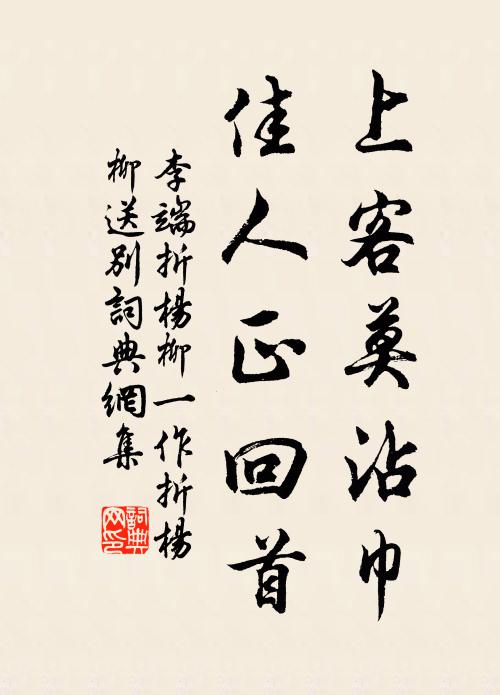 上客莫沾巾
佳人正回首
李端折楊柳一作折楊
柳送别詞典網集
詞典
网印